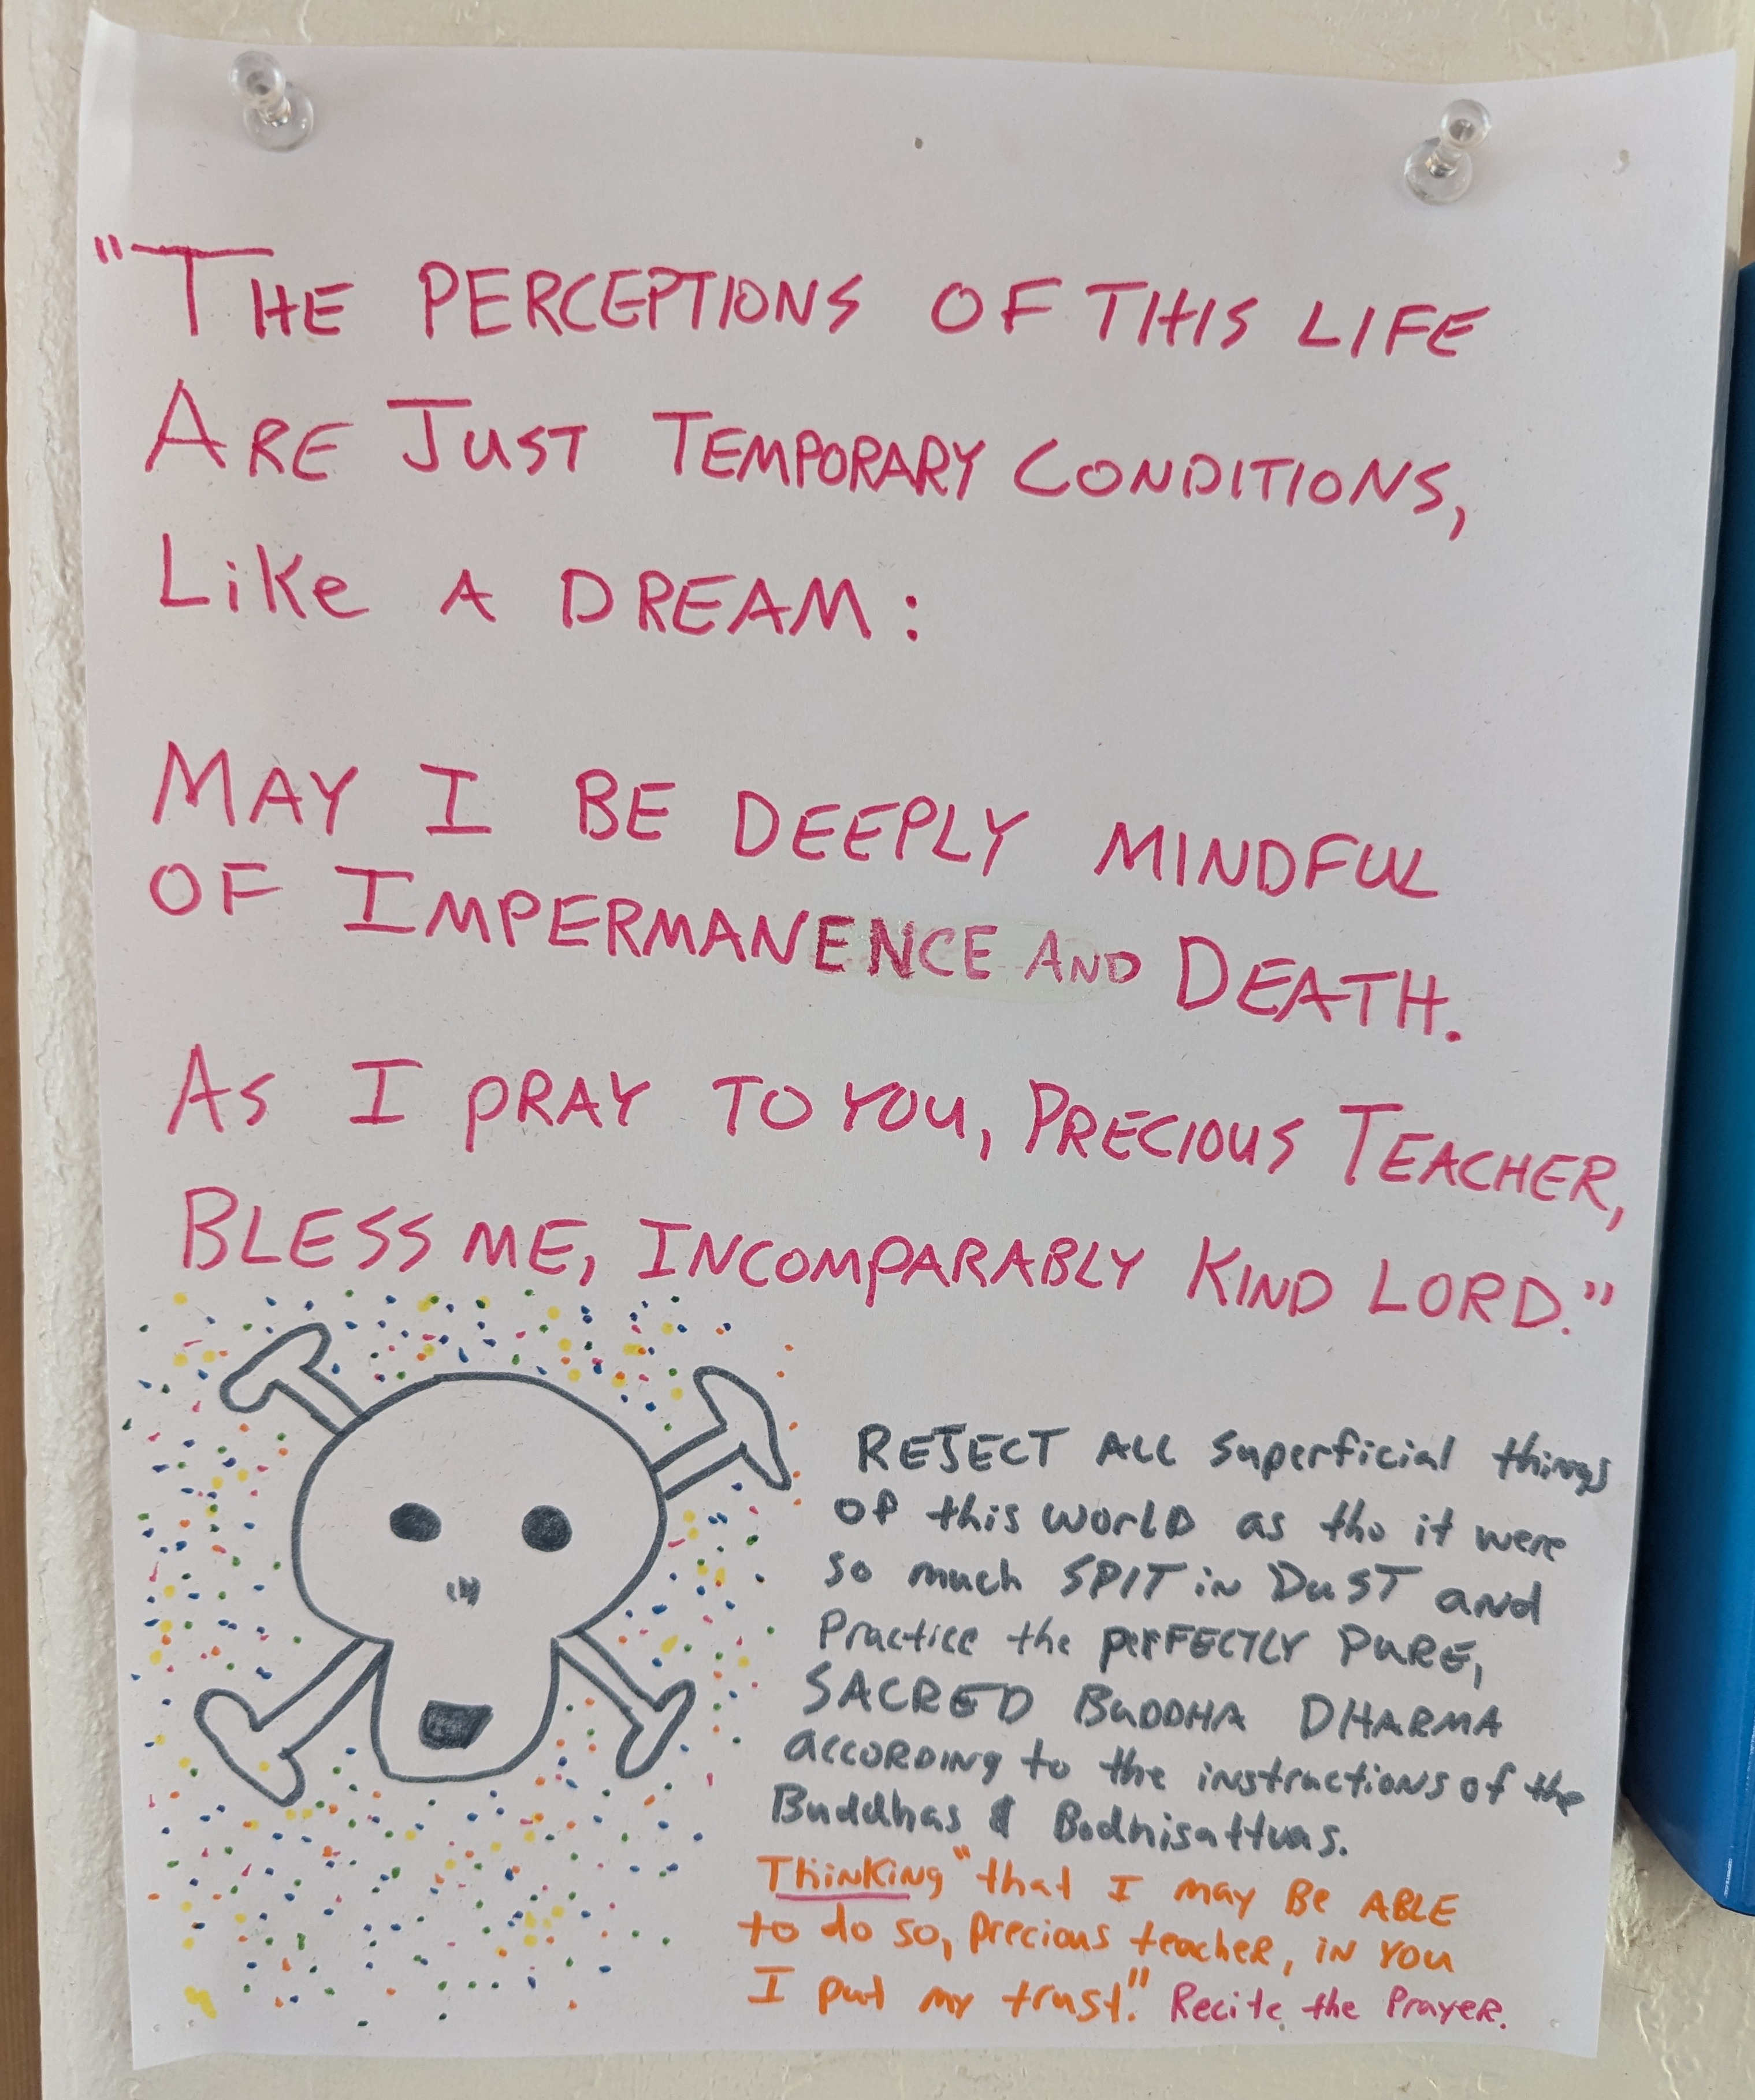 "THE PERCEPTIONS OF THIS LIFE
ARE JUST TEMPORARY CONDITIONS,
LiKe A DREAM:
MAY I BE DEEPLY MINDFUL
OF IMPERMANENCE AND DEATH.
AS I PRAY TO YOU, PRECIOUS TEACHER,
BLESS ME, INCOMPARABLY KIND LORD."
REJECT ALL superficial things
of this WORLD as tho it were
so much SPIT in DUST and
Practice the perFECTLY PURE,
SACRED BUDDHA DHARMA
ACCORDING to the instructions of the
Buddhas & Bodhisattvas.
Thinking "that I may Be ABLE
to do so, precious teacher, in you
I put my trust." Recite the Prayer.